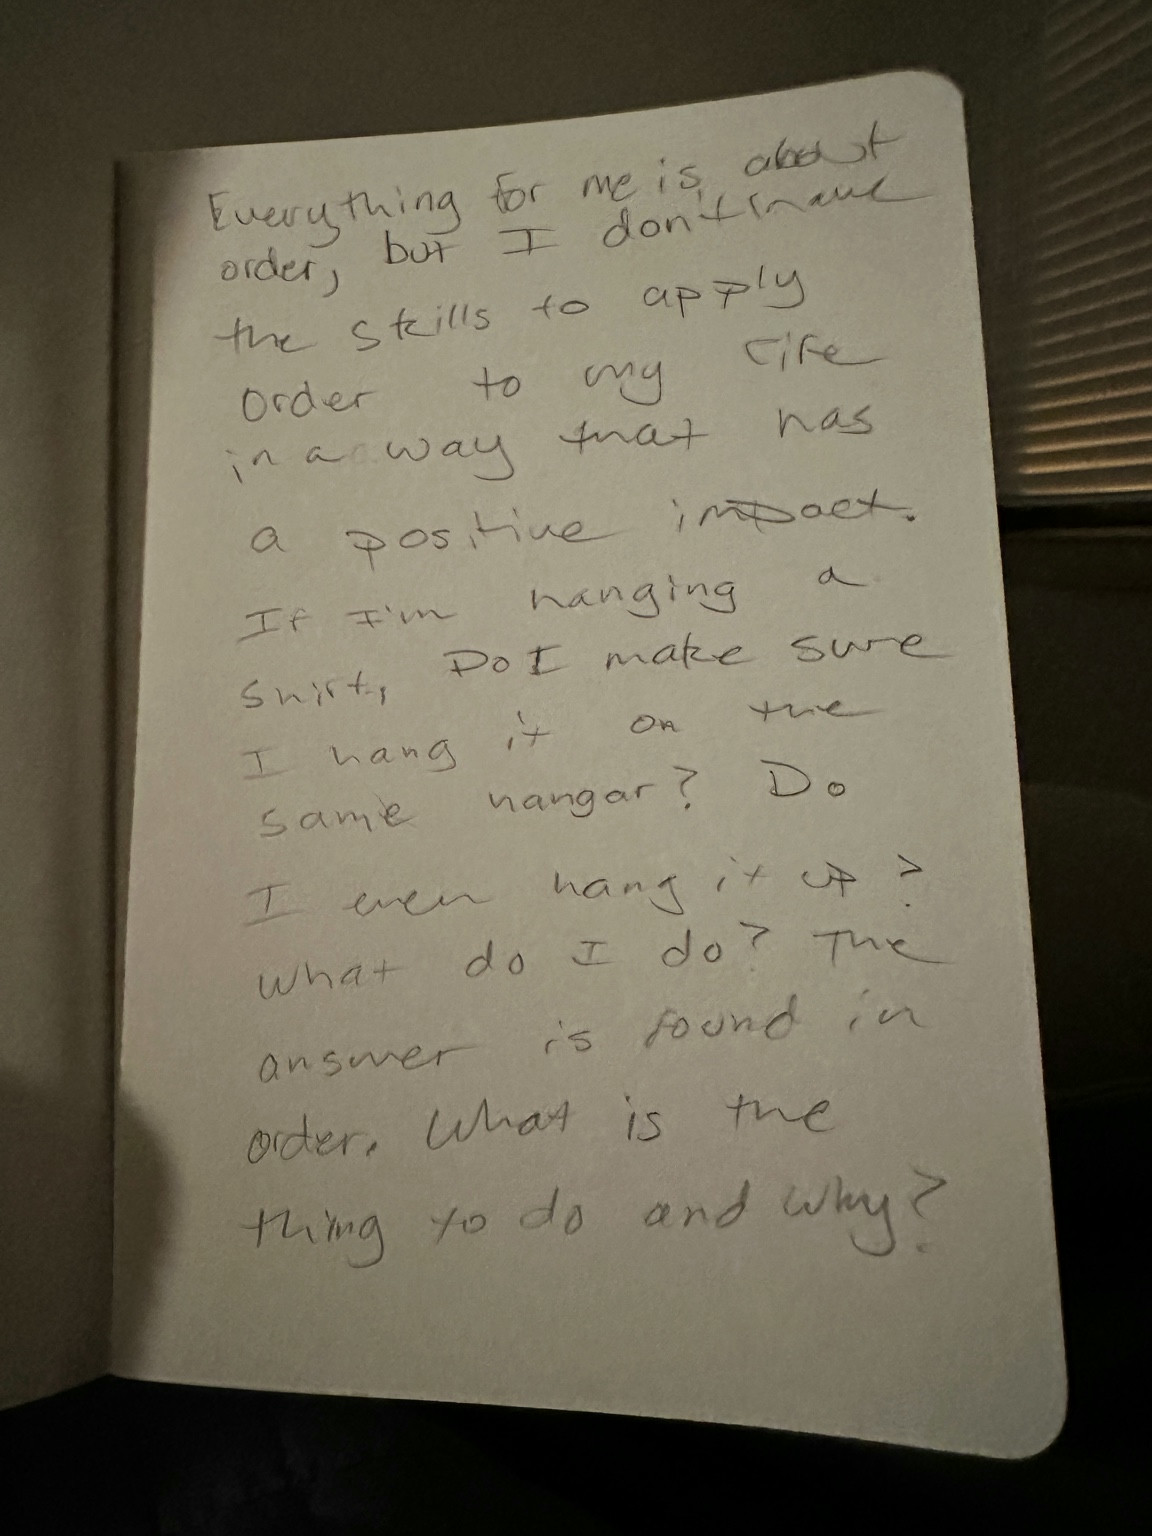 Everything for me is about
order, but I don't have
the skills to apply
order to my life
in a way that has
a positive impact.
If I'm hanging a
shirt, Do I make sure
I hang it on the
same hangar? Do
I even hang it up?
What do I do? The
answer is found in
order. What is the
thing to do and why?